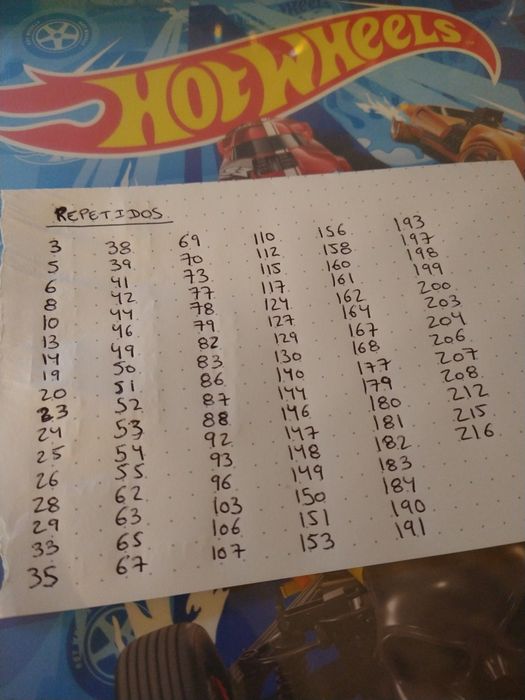 HOT WHEELS
REPETIDOS
3
5
6
8
10
13
14
19
20
23
24
25
26
28
29
33
35
38
39
41
42
44
46
49
50
51
52
53
54
55
62
63
65
67
69
70
73
77
78
79
82
83
86
87
88
92
93
96
103
106
107
110
112
115
117
124
127
129
130
140
144
146
147
148
149
150
151
153
156
158
160
161
162
164
167
168
177
179
180
181
182
183
184
190
191
193
197
198
199
200
203
204
206
207
208
212
215
216